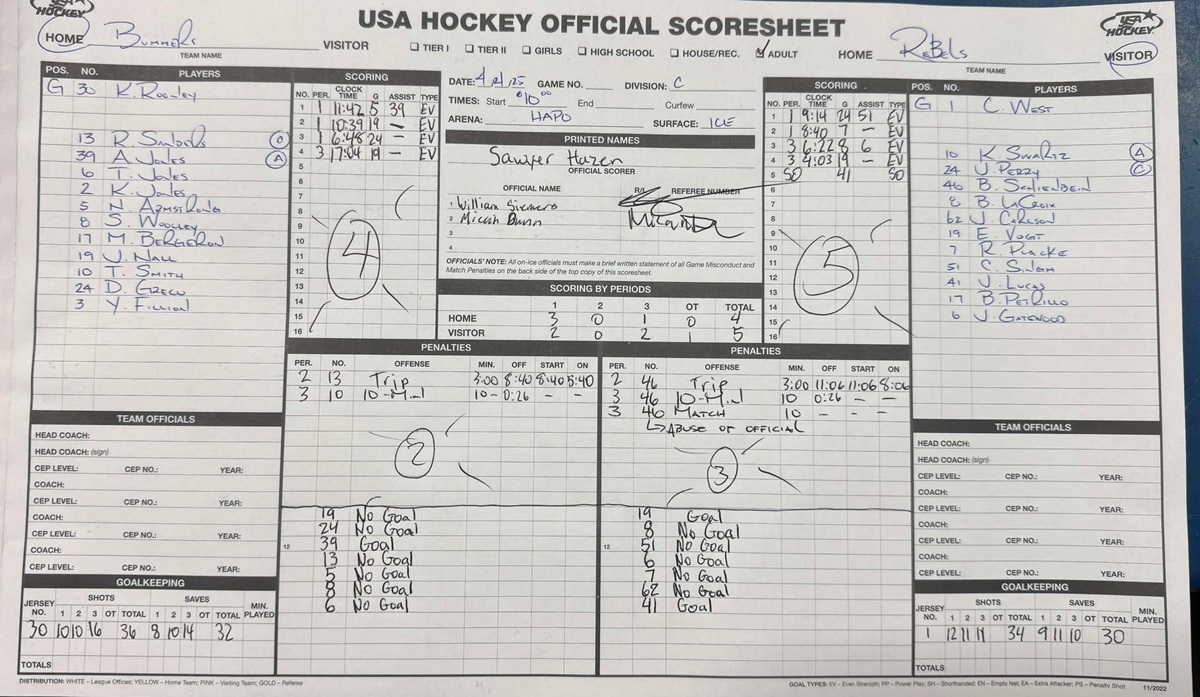 USA HOCKEY
USA HOCKEY OFFICIAL SCORESHEET
USA HOCKEY
HOME Bummers VISITOR
TEAM NAME
TIER I TIER II GIRLS HIGH SCHOOL HOUSE/REC. ADULT
HOME Rebels VISITOR
TEAM NAME
POS. NO. PLAYERS
G 30 K. Roanley
13 R. Sanders C
39 A. Jones A
6 T. Jones
2 K. Jones
5 N. Armstrong
8 S. Woolley
17 M. Bergeron
19 J. Nall
10 T. Smith
24 D. Greco
3 Y. Fillion
SCORING
NO. PER. CLOCK TIME G ASSIST TYPE
1 1 11:42 5 39 EV
2 1 10:39 19 - EV
3 1 6:48 24 - EV
4 3 17:04 19 - EV
5
6
7
8
9
10
11
12
13
14
15
16
4
DATE: GAME NO. DIVISION: C
TIMES: Start End Curfew
ARENA: HAPO SURFACE: ICE
PRINTED NAMES
Sawyer Hazen
OFFICIAL SCORER
OFFICIAL NAME R/L REFEREE NUMBER
1 William Siemers
2 Micah Dunn
3
4
OFFICIALS' NOTE: All on-ice officials must make a brief written statement of all Game Misconduct and
Match Penalties on the back side of the top copy of this scoresheet.
SCORING BY PERIODS
1 2 3 OT TOTAL
HOME 3 0 1 0 4
VISITOR 2 0 2 1 5
SCORING
NO. PER. CLOCK TIME G ASSIST TYPE
1 1 9:14 24 51 EV
2 1 8:40 7 - EV
3 3 6:22 8 6 EV
4 3 4:03 19 - EV
5 SO 41 SO
6
7
8
9
10
11
12
13
14
15
16
5
POS. NO. PLAYERS
G 1 C. West
10 K. Swartz A
24 J. Perry C
46 B. Schienbein
8 B. LaCroix
62 J. Carlson
19 E. Vogt
7 R. Placke
51 C. Singh
41 J. Lucas
17 B. Petrillo
6 J. Gatewood
PENALTIES
PER. NO. OFFENSE MIN. OFF START ON
2 13 Trip 3:00 8:40 8:40 5:40
3 10 10-Min 10 - 0:26 - -
2
19 No Goal
24 No Goal
12 39 Goal
13 No Goal
5 No Goal
8 No Goal
6 No Goal
PENALTIES
PER. NO. OFFENSE MIN. OFF START ON
2 46 Trip 3:00 11:06 11:06 8:06
3 46 10-Min 10 0:26 - -
3 46 Match 10 - - -
↳ Abuse of official
3
19 Goal
8 No Goal
12 51 No Goal
6 No Goal
7 No Goal
62 No Goal
41 Goal
TEAM OFFICIALS
HEAD COACH:
HEAD COACH: (sign)
CEP LEVEL: CEP NO.: YEAR:
COACH:
CEP LEVEL: CEP NO.: YEAR:
COACH:
CEP LEVEL: CEP NO.: YEAR:
COACH:
CEP LEVEL: CEP NO.: YEAR:
GOALKEEPING
JERSEY NO. SHOTS 1 2 3 OT TOTAL SAVES 1 2 3 OT TOTAL MIN. PLAYED
30 10 10 16 36 8 10 14 32
TOTALS
TEAM OFFICIALS
HEAD COACH:
HEAD COACH: (sign)
CEP LEVEL: CEP NO.: YEAR:
COACH:
CEP LEVEL: CEP NO.: YEAR:
COACH:
CEP LEVEL: CEP NO.: YEAR:
COACH:
CEP LEVEL: CEP NO.: YEAR:
GOALKEEPING
JERSEY NO. SHOTS 1 2 3 OT TOTAL SAVES 1 2 3 OT TOTAL MIN. PLAYED
1 12 11 11 34 9 11 10 30
TOTALS
DISTRIBUTION: WHITE – League Offices; YELLOW – Home Team; PINK – Visiting Team; GOLD – Referee
GOAL TYPES: EV – Even Strength; PP – Power Play; SH – Shorthanded; EN – Empty Net; EA – Extra Attacker; PS – Penalty Shot 11/2022